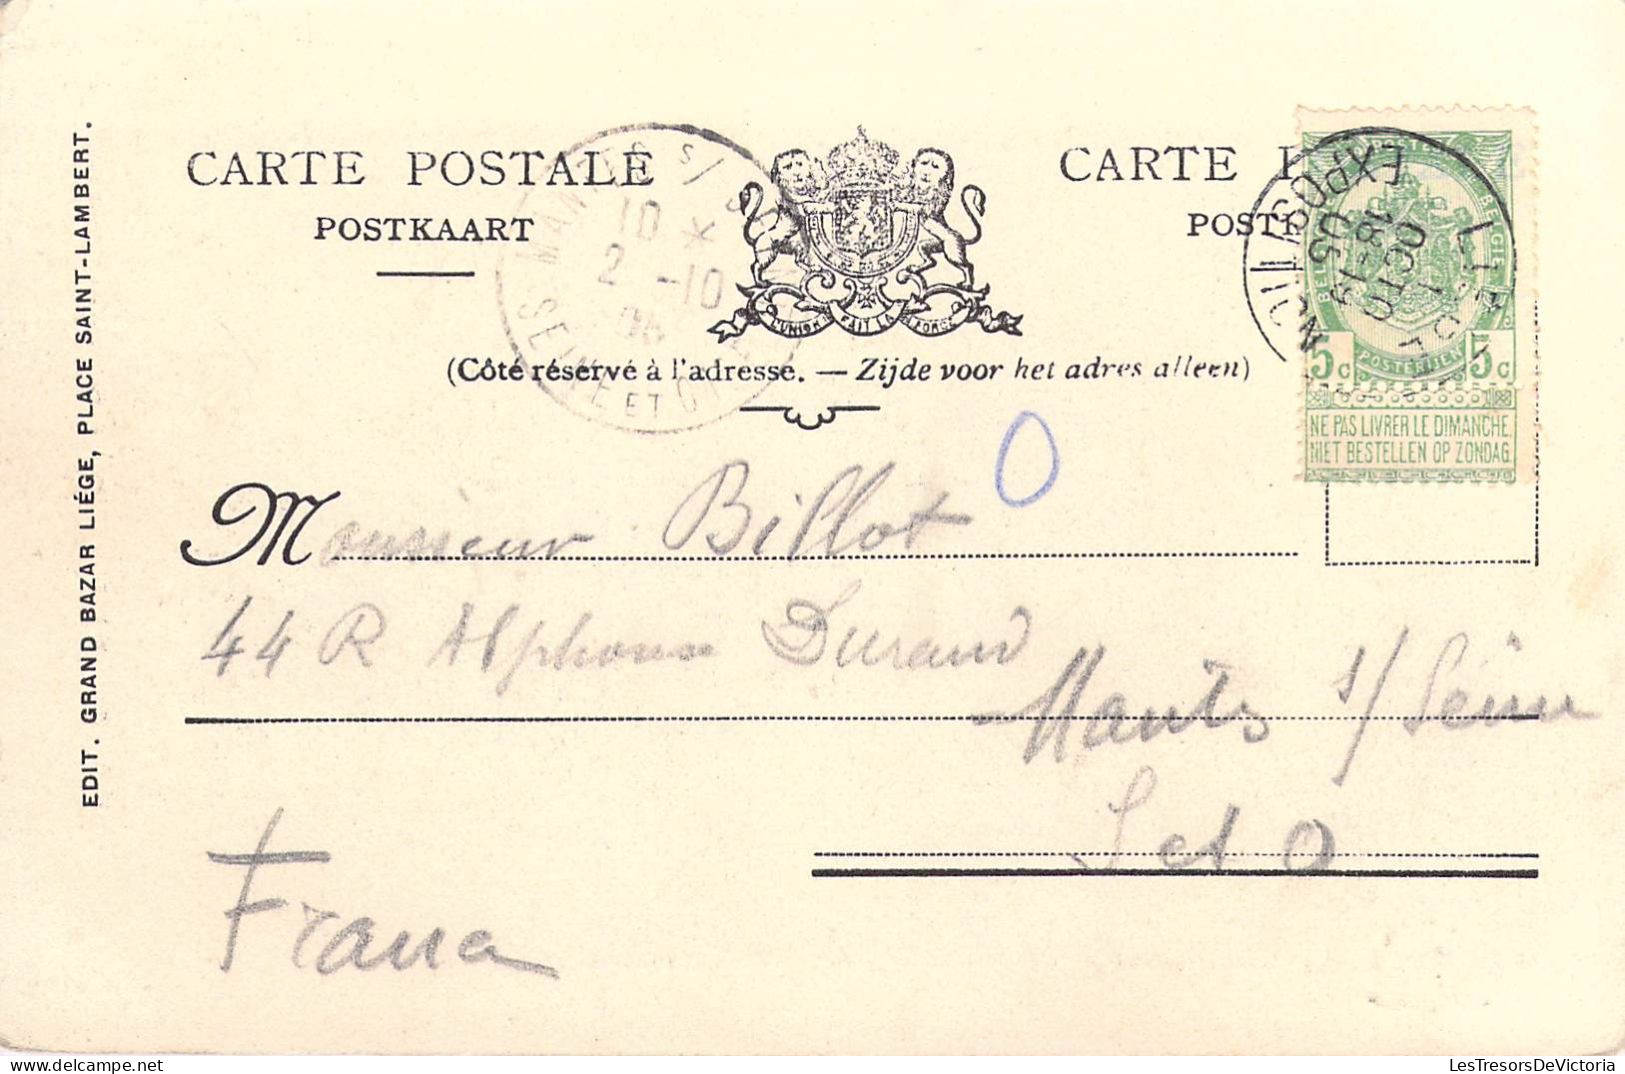 CARTE POSTALE
POSTKAART
CARTE P
POSTK
L'UNION FAIT LA FORCE
(Côté réservé à l'adresse. — Zijde voor het adres alleen)
EDIT. GRAND BAZAR LIÉGE, PLACE SAINT-LAMBERT.
MANTES S/ SEINE
10 *
2 -10
05
SEINE ET OISE
LIÈGE
EXPOSITION
18-19
1 OCTO
05
5 c 5 c
POSTERIJEN
NE PAS LIVRER LE DIMANCHE
NIET BESTELLEN OP ZONDAG
Monsieur Billot
44 R Alphonse Durand
Mantes s/ Seine
S et O
France
LesTresorsDeVictoria